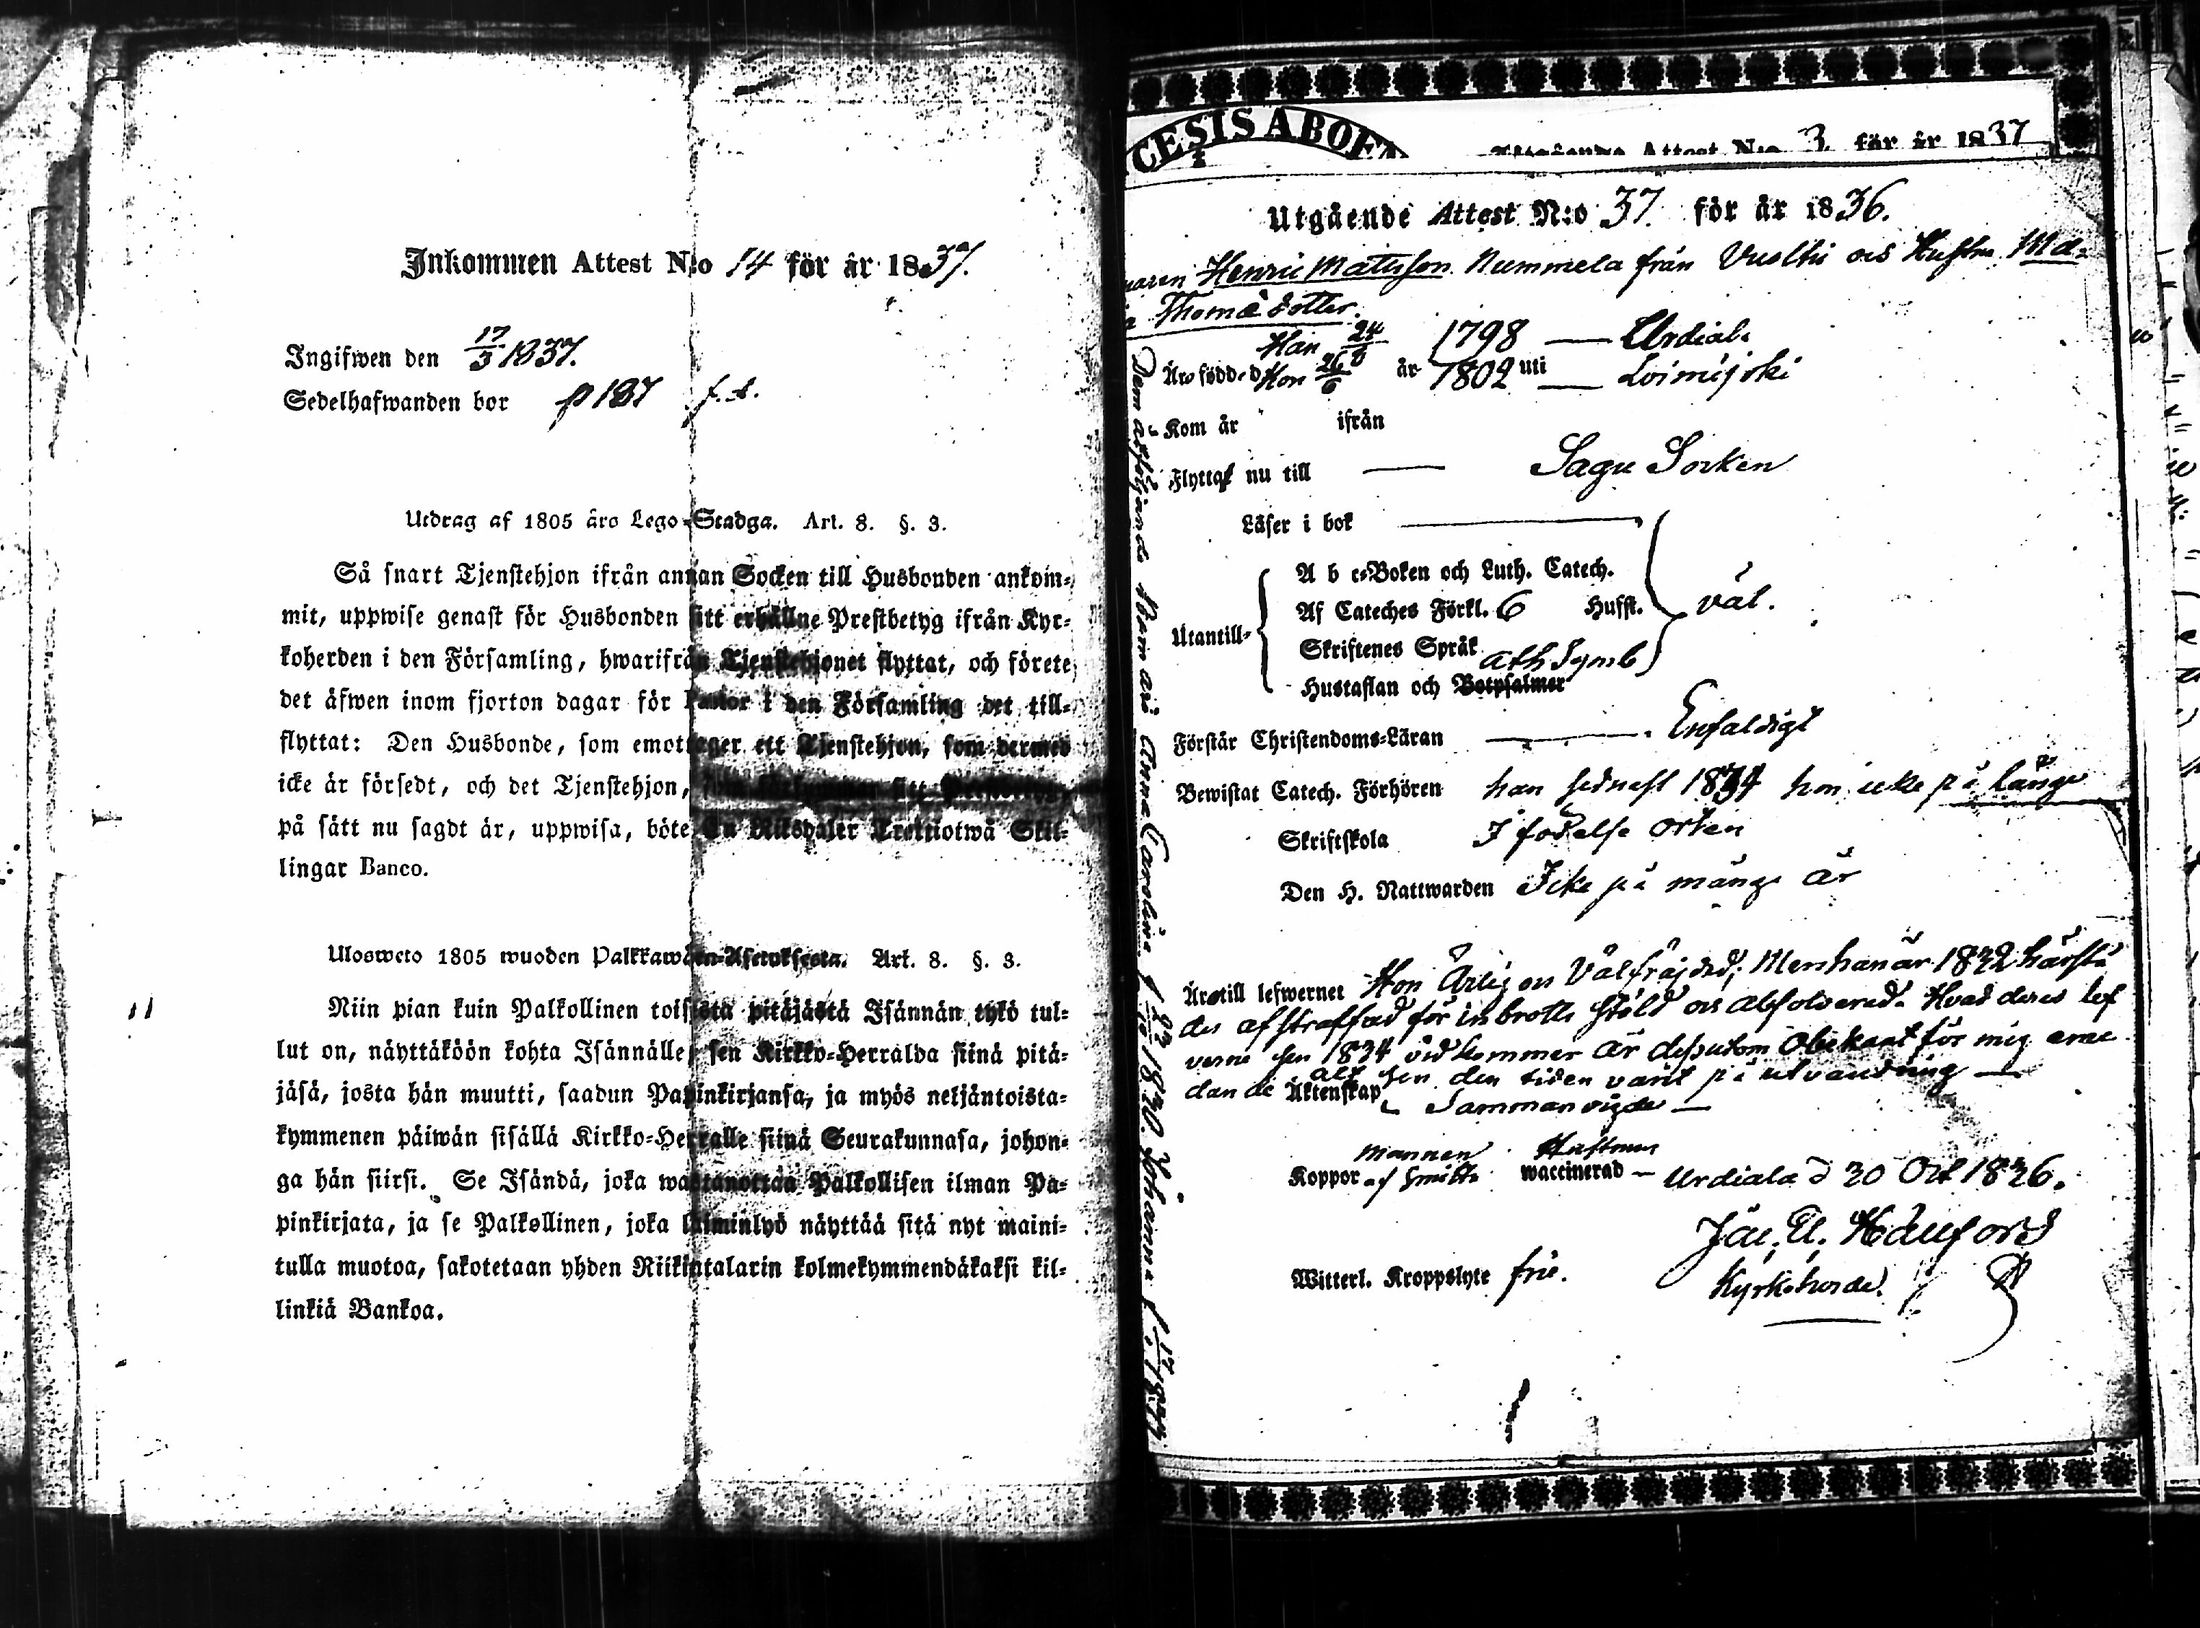 Inkommen Attest N:o 14 för år 1837.
Ingifwen den 17/3 1837.
Sedelhafwanden bor p 187 f. A.
Utdrag af 1805 års Lego-Stadga. Art. 8. §. 3.
Så snart Tjenstehjon ifrån annan Socken till Husbonden ankom-
mit, uppwise genast för Husbonden sitt erhållne Prestbetyg ifrån Kyr-
koherden i den Församling, hwarifrån Tjenstehjonet flyttat, och förete
det äfwen inom fjorton dagar för Pastor i den Församling det till-
flyttat: Den Husbonde, som emottager ett Tjenstehjon, som dermed
icke är försedt, och det Tjenstehjon, som försummar sitt Prestbetyg,
på sätt nu sagdt är, uppwisa, böte En Riksdaler Trettiotwå Skil-
lingar Banco.
Ulosweto 1805 wuoden Palkkawäen-Asetuksesta. Art. 8. §. 3.
Niin pian kuin Palkollinen toisesta pitäjästä Isännän tykö tul-
lut on, näyttäköön kohta Isännälle, sen Kirkko-Herralda siinä pitä-
jäsä, josta hän muutti, saadun Papinkirjansa, ja myös neljäntoista-
kymmenen päiwän sisällä Kirkko-Herralle siinä Seurakunnasa, johon-
ga hän siirsi. Se Isändä, joka wastanottaa Palkollisen ilman Pa-
pinkirjata, ja se Palkollinen, joka laiminlyö näyttää sitä nyt maini-
tulla muotoa, sakotetaan yhden Riikintalarin kolmekymmendäkaksi kil-
linkiä Bankoa.
CESIS ABOE
Utgående Attest N:o 3 för år 1837
Utgående Attest N:o 37 för år 1836.
Henric Mattsson Nummela från Vuoltu och Hustru Ma-
Thomædotter.
Han 24/8 1798 — Urdiala
Äro född d Hon 26/6 år 1802 uti — Loimijoki
Kom år ifrån
Flytta nu till — Sagu Socken
Läser i bok
A b c-Boken och Luth. Catech.
Utantill- Af Cateches Förkl. 6 Hufst. väl.
Skriftenes Språk Ath Symb
Hustaflan och Botpsalmer
Förstår Christendoms-Läran — Enfaldigt
Bewistat Catech. Förhören han sednast 1834 hon icke på länge
Skriftskola I födelse orten
Den H. Nattwarden Icke på många År
Äro till lefwernet Hon Ärlig och Välfräjdad; Men han är 1832 härstä
des afstraffad för inbrotts stöld och Absolverad. Hvad deras lef
verne sen 1834 vidkommer är dessutom Obekant för mig eme
dan de alt sen den tiden varit på utvandring —
Äktenskap Sammanvigde —
Mannen Hustrun
Koppor af Smitta waccinerad — Urdiala d 20 Oct 1836.
Jac. U. Häufors
Kyrkoherde.
Witterl. Kroppslyte frie.
Dem åtföljande Barn äro Anna Carolina f 1830. Johanna f. 1834